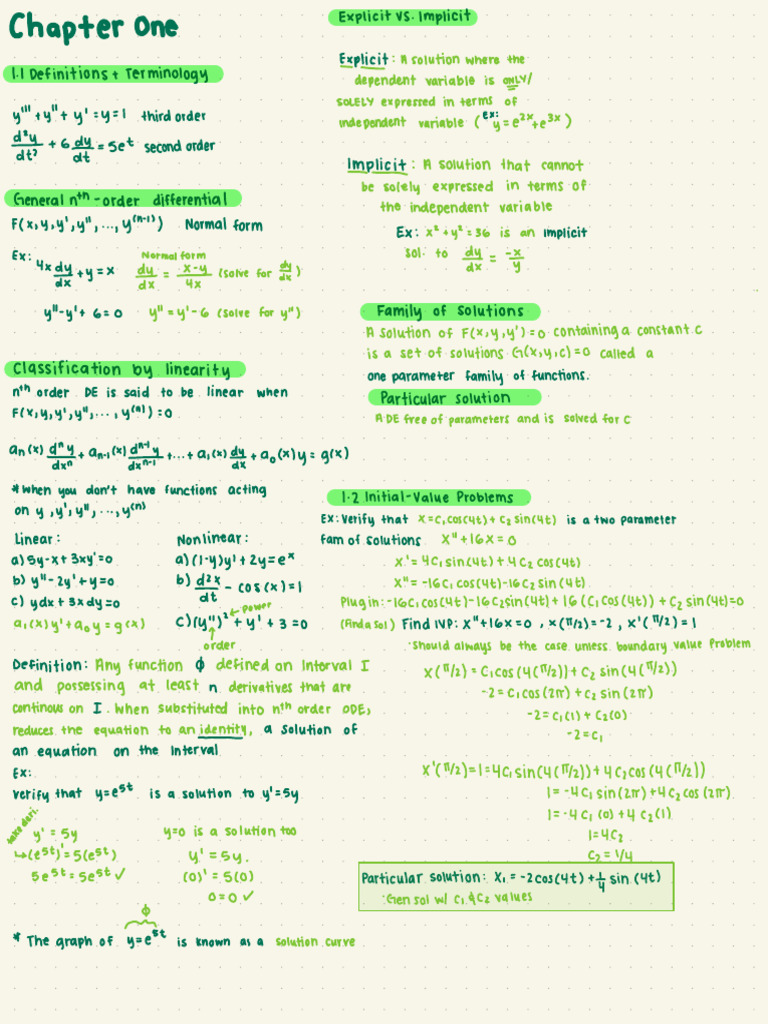 Chapter One
1.1 Definitions + Terminology
y''' + y'' + y' = y = 1 third order
d²y/dt² + 6 dy/dt = 5e^t second order
General nth-order differential
F(x, y, y', y'', ..., y^(n-1)) Normal form
Ex:
4x dy/dx + y = x
Normal form
dy/dx = x-y/4x (solve for dy/dx)
y'' - y' + 6 = 0 y'' = y' - 6 (solve for y'')
Classification by linearity
nth order DE is said to be linear when
F(x, y, y', y'', ..., y^(n)) = 0
an(x) d^n y/dx^n + an-1(x) d^n-1 y/dx^n-1 + ... + a1(x) dy/dx + a0(x) y = g(x)
*When you don't have functions acting
on y, y', y'', ..., y^(n)
Linear:
a) 5y - x + 3xy' = 0
b) y'' - 2y' + y = 0
c) ydx + 3xdy = 0
a1(x)y' + a0y = g(x)
Nonlinear:
a) (1-y)y' + 2y = e^x
b) d²x/dt - cos(x) = 1
power
c) (y'')² + y' + 3 = 0
order
Definition: Any function ϕ defined on interval I
and possessing at least n derivatives that are
continous on I. When substituted into nth order ODE,
reduces the equation to an identity, a solution of
an equation on the interval
Ex:
Verify that y=e^5t is a solution to y'=5y
take deri.
y' = 5y
↳(e^5t)' = 5(e^5t)
5e^5t = 5e^5t ✓
y=0 is a solution too
y' = 5y
(0)' = 5(0)
0 = 0 ✓
ϕ
* The graph of y=e^5t is known as a solution curve
Explicit vs. Implicit
Explicit: A solution where the
dependent variable is ONLY/
SOLELY expressed in terms of
independent variable (ex: y=e^2x+e^3x)
Implicit: A solution that cannot
be solely expressed in terms of
the independent variable
Ex: x² + y² = 36 is an implicit
sol. to dy/dx = -x/y
Family of Solutions
A solution of F(x,y,y')=0 containing a constant c
is a set of solutions G(x,y,c)=0 called a
one parameter family of functions.
Particular solution
A DE free of parameters and is solved for C
1.2 Initial-Value Problems
Ex: Verify that x=c1cos(4t) + c2 sin(4t) is a two parameter
fam of solutions x''+16x=0
x' = 4c1 sin(4t) + 4c2 cos(4t)
x'' = -16c1 cos(4t) - 16c2 sin(4t)
Plug in: -16c1 cos(4t) - 16c2 sin(4t) + 16(c1 cos(4t)) + c2 sin(4t) = 0
(Find a sol) Find IVP: x''+16x=0, x(π/2) = -2, x'(π/2) = 1
·Should always be the case unless boundary value problem
x(π/2) = c1 cos(4(π/2)) + c2 sin(4(π/2))
-2 = c1 cos(2π) + c2 sin(2π)
-2 = c1(1) + c2(0)
-2 = c1
x'(π/2) = 1 = 4c1 sin(4(π/2)) + 4c2 cos(4(π/2))
1 = -4c1 sin(2π) + 4c2 cos(2π)
1 = -4c1(0) + 4c2(1)
1 = 4c2
c2 = 1/4
Particular solution: x1 = -2cos(4t) + 1/4 sin(4t)
·Gen sol w/ c1 & c2 values